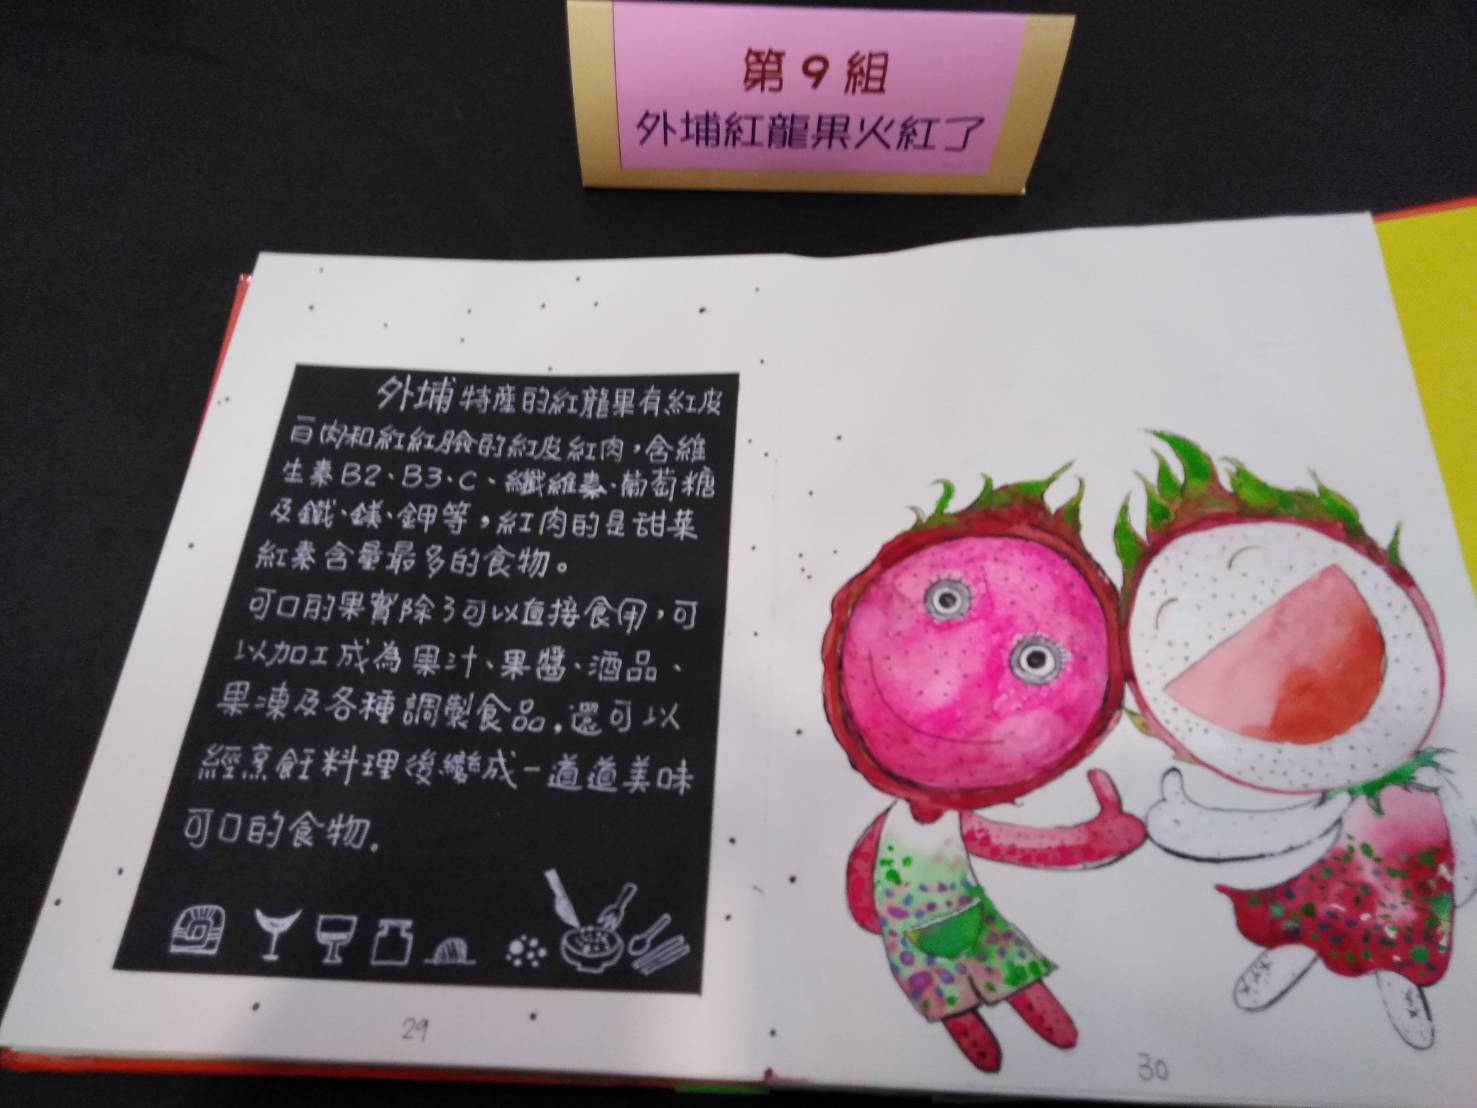 第9組
外埔紅龍果火紅了
外埔特產的紅龍果有紅皮
白肉和紅紅臉的紅皮紅肉，含維
生素B2、B3、C、纖維素、葡萄糖
及鐵、鎂、鉀等，紅肉的是甜菜
紅素含量最多的食物。
可口的果實除了可以直接食用，可
以加工成為果汁、果醬、酒品、
果凍及各種調製食品，還可以
經烹飪料理後變成一道道美味
可口的食物。
29
30